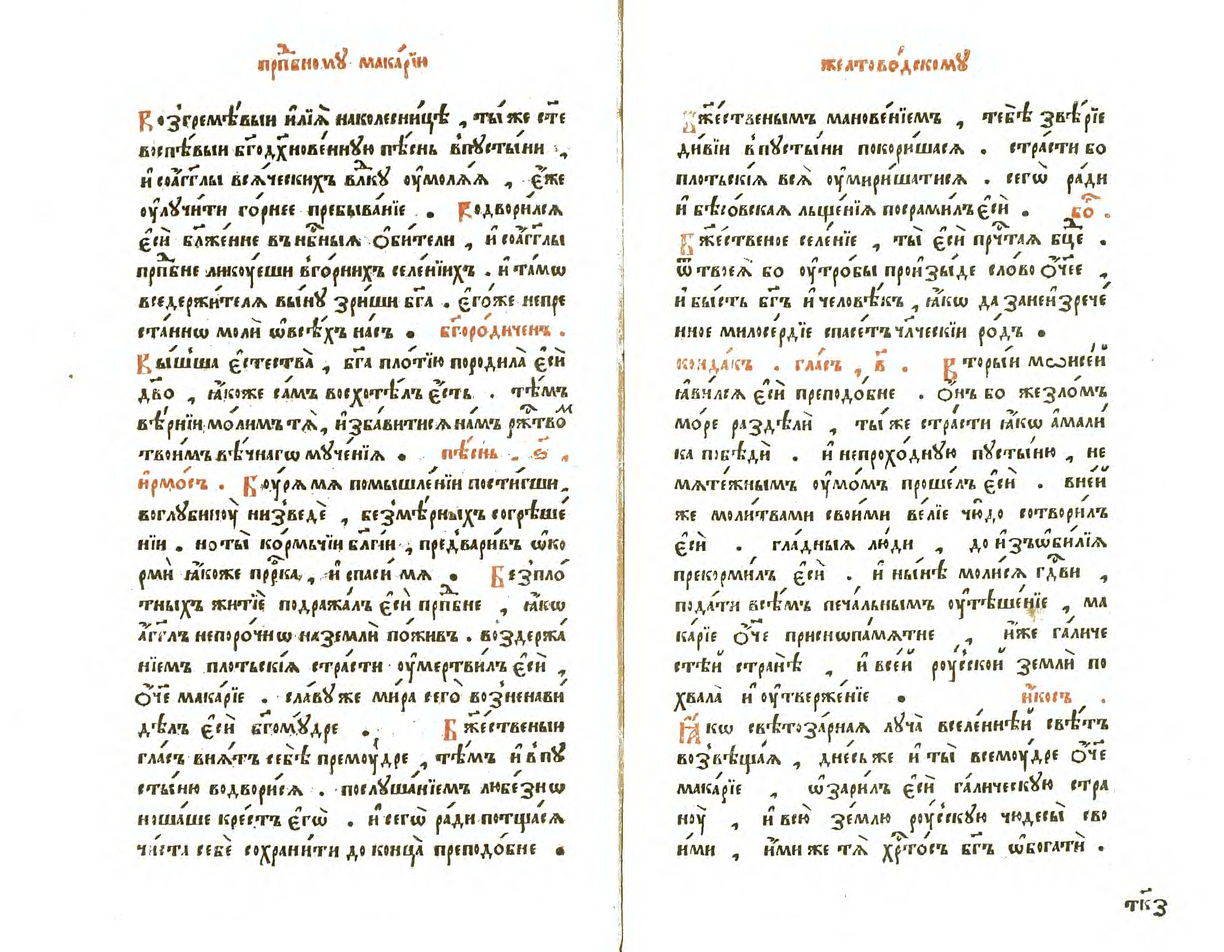 прпⷣбному макарїю
Возгреме́выи и҆лїѧ̀ наколесни́цѣ , ты́ же ст҃е
воспѣ́выи бг҃одх҃нове́нную пѣ́снь в̾пусты́ни ,
и҆ соа҆́гг҃лы всѧ́ческихъ влⷣку оу҆молѧ́ѧ , є҆́же
оу҆лучи́ти го́рнее пребыва́нїе . Водвори́лсѧ
є҆сѝ бл҃же́нне въ нбⷭ҇ныѧ ѻ҆би́тели , и҆ соа҆́гг҃лы
прпⷣбне лику́еши в̾го́рнихъ селе́нїихъ . и҆ та́мѡ
вседержи́телѧ вы́ну зри́ши бг҃а . є҆го́же непре
ста́ннѡ молѝ ѡ҆всѣ́хъ на́съ . бг҃оро́диченъ .
Вы́шша є҆стества̀ , бг҃а пло́тїю породила̀ є҆сѝ
дв҃о , ꙗ҆́коже са́мъ восхотѣ́лъ є҆́сть . тѣ́мъ
вѣ́рнїи мо́лимъ тѧ̀ , и҆зба́витисѧ на́мъ ржⷭ҇твоⷨ
твои́мъ вѣ́чнагѡ муче́нїѧ . пѣ́снь . ѕ҃ .
і҆рмо́съ . Бу́рѧ мѧ помышле́нїи пости́гши ,
воглубинꙋ̀ низведѐ , безмѣ́рныхъ согрѣше́
нїи . но ты̀ ко́рмьчїи бл҃гїи , предвари́въ ѡ҆ко
рмѝ ꙗ҆́коже прⷪ҇рка , и҆ спаси́ мѧ . Безпло́
тныхъ житїѐ подража́лъ є҆сѝ прпⷣбне , ꙗ҆́кѡ
а҆́гг҃лъ непоро́чнѡ на землѝ пожи́въ . воздержа́
нїемъ пло́тьскїѧ стра́сти оу҆мертви́лъ є҆сѝ ,
ѻ҆́ч҃е мака́рїе . сла́ву же ми́ра сего̀ возненави́
дѣлъ є҆сѝ бг҃ому́дре . Бж҃е́ственыи
гла́съ внѧ́тъ себѣ̀ прему́дре , тѣ́мъ и҆ в̾пу
сты́ню водвори́сѧ . послуша́нїемъ любе́знѡ
ноша́ше кре́стъ є҆гѡ̀ . и҆ сегѡ̀ ра́ди потща́сѧ
чи́ста себѐ сохрани́ти до конца̀ преподо́бне .
желтово́дскому
Бж҃е́ственымъ манове́нїемъ , тебѣ̀ звѣ́рїе
ди́вїи в̾пусты́ни покори́шасѧ . стра́сти бо
пло́тьскїѧ всѧ̀ оу҆мири́ша ти сѧ . сегѡ̀ ра́ди
и҆ бѣсо́вскаѧ льще́нїѧ посрами́лъ є҆сѝ . бо҃ .
Бж҃е́ственое селе́нїе , ты̀ є҆сѝ прⷱ҇таѧ бцⷣе .
ѿ твоеѧ̀ бо оу҆тро́бы произы́де сло́во ѻ҆́ч҃ее ,
и҆ бы́сть бг҃ъ и҆ человѣ́къ , ꙗ҆́кѡ да за неизрече́
нное милосе́рдїе спасе́тъ чл҃ческїи ро́дъ .
конда́къ . гла́съ , в҃ . Вторы́и мѡисе́й
ꙗ҆ви́лсѧ є҆сѝ преподо́бне . ѻ҆́нъ бо жезло́мъ
мо́ре раздѣлѝ , ты́ же стра́сти ꙗ҆́кѡ а҆мали́
ка побѣдѝ . и҆ непрохо́дную пусты́ню , не
мѧте́жнымъ оу҆мо́мъ проше́лъ є҆сѝ . вне́й
же моли́твами свои́ми ве́лїе чю́до сотвори́лъ
є҆сѝ . гла́дныѧ лю́ди , до и҆зъѡби́лїѧ
прекорми́лъ є҆сѝ . и҆ ны́нѣ моли́сѧ гдⷭ҇ви ,
пода́ти всѣ́мъ печа́льнымъ оу҆тѣше́нїе , ма
ка́рїе ѻ҆́ч҃е приснѡпа́мѧтне , и҆́же га́личе
стѣ́й странѣ̀ , и҆ все́й роу́сской землѝ по
хвала̀ и҆ оу҆твержде́нїе . и҆́косъ .
Ꙗ҆́кѡ свѣтоза́рнаѧ луча̀ вселе́ннѣй свѣ́тъ
возвѣща́ѧ , дне́сь же и҆ ты̀ всему́дре ѻ҆́ч҃е
мака́рїе , ѡ҆зари́лъ є҆сѝ гали́ческую стра
нꙋ̀ , и҆ всю̀ зе́млю роу́сскую чюдесы̀ сво
и́ми , и҆́ми же тѧ̀ хрⷭ҇то́съ бг҃ъ ѡ҆богатѝ .
тк҃з